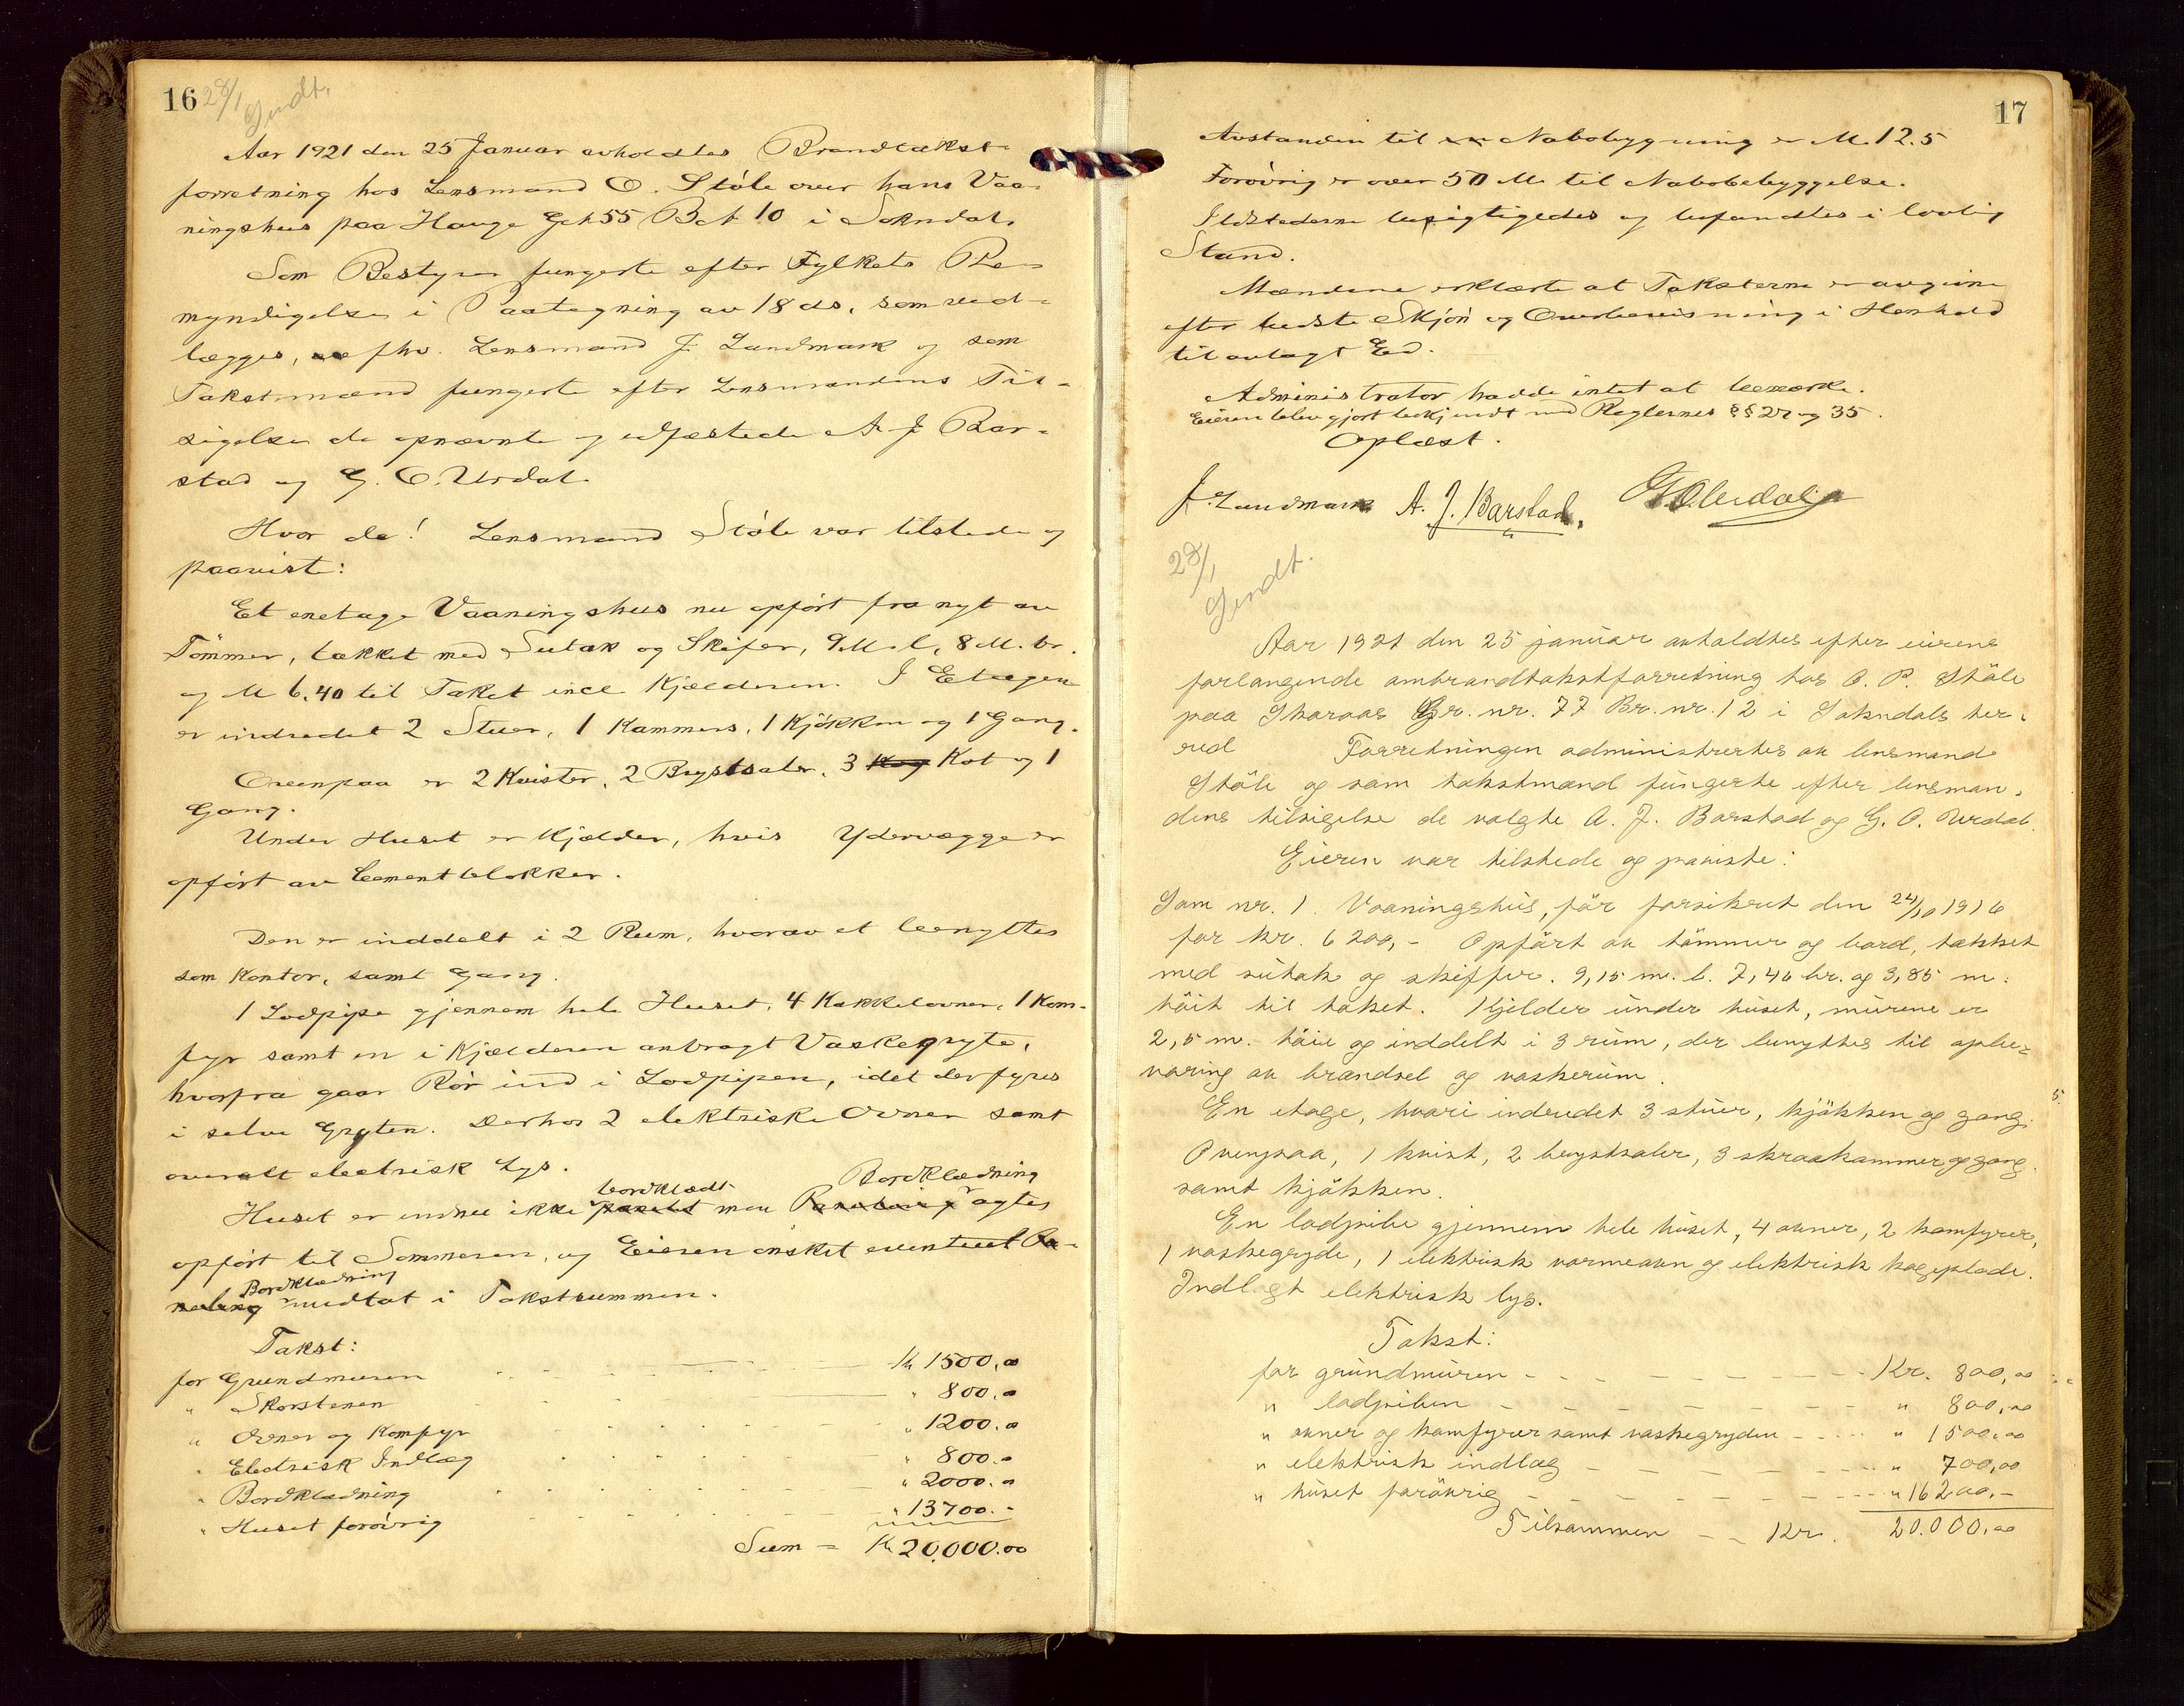 16 28/1 Sendt.
Aar 1921 den 25 Januar avholdtes Brandtakst-
forretning hos Lensmand O. Støle over hans Vaa-
ningshus paa Hauge Gr 55 Br 10 i Sokndal.
Som Bestyrer fungerte efter Fylkets Be-
myndigelse i Paategning av 18 ds, som ved-
lægges, fhv. Lensmand J. Landmark og som
Takstmænd fungerte efter Lensmandens Til-
sigelse de opnævnte og edfæstede A. J. Bar-
stad og G. O. Urdal.
Hvor da! Lensmand Støle var tilstede og
paaviste:
Et enetage Vaaningshus nu opført fra nyt av
Tømmer, tækket med Sutak og Skifer, 9 M. l, 8 M. br.
og M 6.40 til Taket incl Kjælderen. I Etagen
er indredet 2 Stuer, 1 Kammers, 1 Kjøkken og 1 Gang.
Ovenpaa er 2 Kvister, 2 Brystsaler, 3 Kot og 1
Gang.
Under Huset er Kjælder, hvis Ydervægge er
opført av Cementblokker.
Den er inddelt i 2 Rum, hvorav et benyttes
som Kontor, samt Gang.
1 Lodpipe gjennem hele Huset, 4 Kakkelovner, 1 Kom-
fyr samt en i Kjælderen anbragt Vaskegryte,
hvorfra gaar Rør ind i Lodpipen, idet der fyres
i selve Gryten. Derhos 2 elektriske Ovner samt
overalt electrisk Lys.
Huset er endnu ikke panelet bordklædt men Paneling Bordklædning agtes
opført til Sommeren, og Eieren ønsket eventuel Pa-
neling Bordklædning medtat i Takstsummen.
Takst:
for Grundmuren Kr 1500.00
" Skorstenen " 800.00
" Ovner og Komfyr " 1200.00
" Electrisk Indlæg " 800.-
" Bordklædning " 2000.-
" Huset forøvrig " 13700.-
Sum = Kr 20.000.00
17
Avstanden til Nabobygning er M. 12.5
Forøvrig er over 50 M til Nabobebyggelse.
Ildstederne besigtigedes og befandtes i lovlig
Stand.
Mændene erklærte at Taksterne er avgivne
efter bedste Skjøn og Overbevisning i Henhold
til avlagt Ed.
Administrator hadde intet at bemærke.
Eieren blev gjort bekjendt med Reglernes §§ 27 og 35.
Oplæst.
J. Landmark A. J. Barstad, G. O. Urdal
28/1 Sendt.
Aar 1921 den 25 januar avholdtes efter eierens
forlangende ombrandtakstforretning hos O. P. Støle
paa Skaraas Gr. nr. 77 Br. nr. 12 i Sokndals her-
red Forretningen administrertes av lensmand
Støle og som takstmænd fungerte efter lensman-
dens tilsigelse de valgte A. J. Barstad og G. O. Urdal.
Eieren var tilstede og paaviste:
Som nr. 1. Vaaningshus, før forsikret den 24/10 1916
for kr. 6200,- Opført av tømmer og bord, tækket
med sutak og skiffer. 9,15 m. l. 7,46 br. og 3,85 m.
høit til taket. Kjelder under huset, murene er
2,5 m. høie og inddelt i 3 rum, der benyttes til opbe-
varing av brændsel og vaskerum.
En etage, hvori indredet 3 stuer, kjøkken og gang.
Ovenpaa, 1 kvist, 2 brystsaler, 3 skraakammer og gang
samt kjøkken.
En lodpibe gjennem hele huset, 4 ovner, 2 komfyrer,
1 vaskegryde, 1 elektrisk varmeovn og elektrisk kogeplade.
Indlagt elektrisk lys.
Takst:
for grundmuren Kr. 800,00
" lodpiben " 800,00
" ovner og komfyrer samt vaskegryden " 1500,00
" elektrisk indlæg " 700,00
" huset forøvrig " 16200,-
Tilsammen Kr. 20.000,00